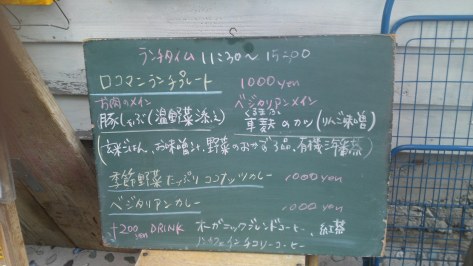 ランチタイム 11:30〜15:00
ロコマニランチプレート 1000yen
お肉メイン ベジタリアンメイン
豚しゃぶ(温野菜添え) 車麩のカツ(りんご味噌)
くるまふ
(玄米ごはん、お味噌汁、野菜のおかず3品、有機三年番茶)
季節野菜たっぷりココナッツカレー 1000yen
ベジタリアンカレー 1000yen
+200yen DRINK オーガニックブレンドコーヒー、紅茶
チコリーコーヒー